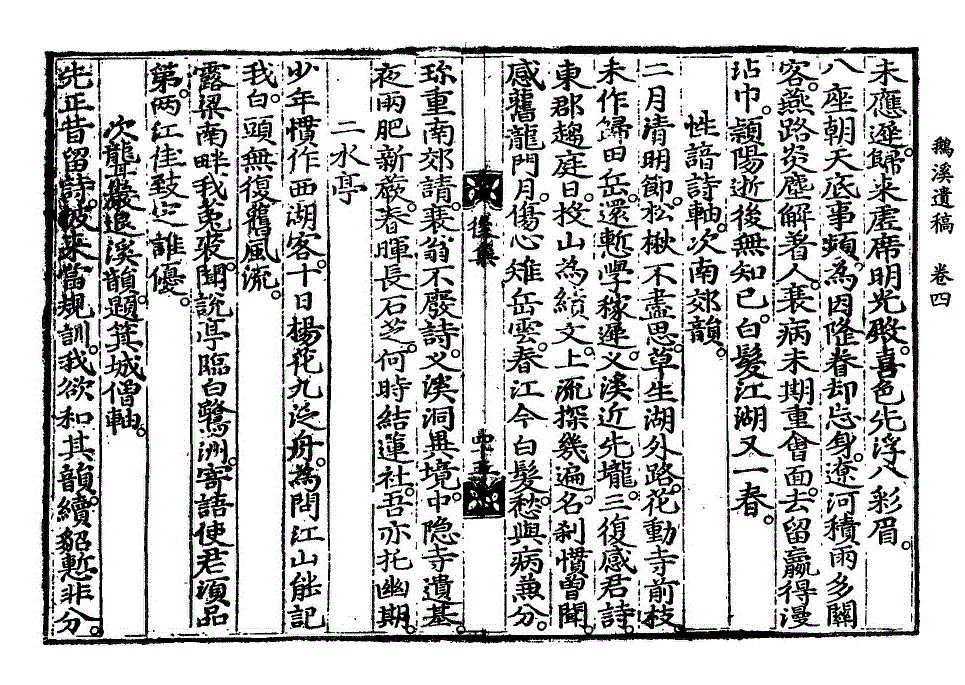 鵝溪遺稿　卷四
未應遲歸来虛席明光殿喜色先浮八彩眉
八座朝天底事頻為因隆眷却忘身遼河積雨多關
客燕路炎塵解暑人衰病未期重會面去留羸得漫
玷巾潁陽逝後無知己白髮江湖又一春
性諳詩軸次南郊韻
二月清明節松楸不盡思草生湖外路花動寺前枝
未作歸田岳還慙學稼遲又溪近先壠三復感君詩
東郡趨庭日投山為績文上流探幾遍名刹慣曾聞
感舊龍門月傷心雉岳雲春江今白髮愁與病兼分
後集
四十五
珎重南郊請衰翁不廢詩又溪洞異境中隐寺遺基
夜雨肥新蕨春暉長石芝何時結蓮社吾亦托幽期
二水亭
少年慣作西湖客十日楊花九泛舟為問江山能記
我白頭無復舊風流
露梁南畔我菟裘聞說亭臨白鷺洲寄語使君須品
第兩江佳致㝎誰優
次聾巖退溪韻題箕城僧軸
先正昔留詩彼来當規訓我欲和其韻續貂慙非分